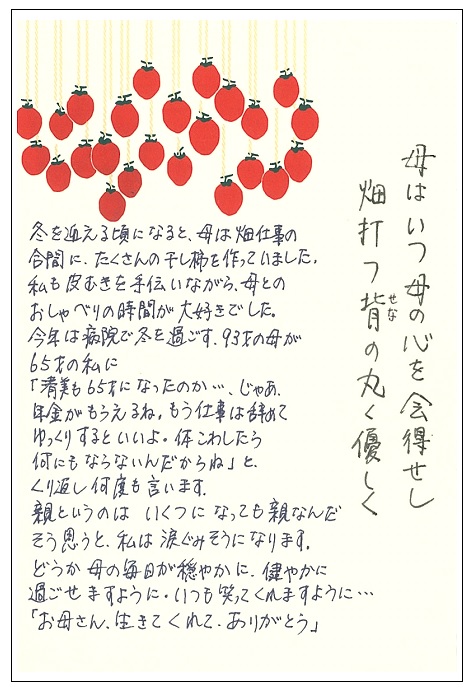 母はいつ母の心を会得せし
畑打つ背の丸く優しく
せな
冬を迎える頃になると、母は畑仕事の
合間に、たくさんの干し柿を作っていました。
私も皮むきを手伝いながら、母との
おしゃべりの時間が大好きでした。
今年は病院で冬を過ごす、93才の母が
65才の私に
「清美も65才になったのか…、じゃあ、
年金がもらえるね。もう仕事は辞めて
ゆっくりするといいよ。体こわしたら
何にもならないんだからね」と、
くり返し何度も言います。
親というのは いくつになっても親なんだ
そう思うと、私は涙ぐみそうになります。
どうか 母の毎日が穏やかに、健やかに
過ごせますように。いつも笑ってくれますように…
「お母さん、生きてくれて、ありがとう」